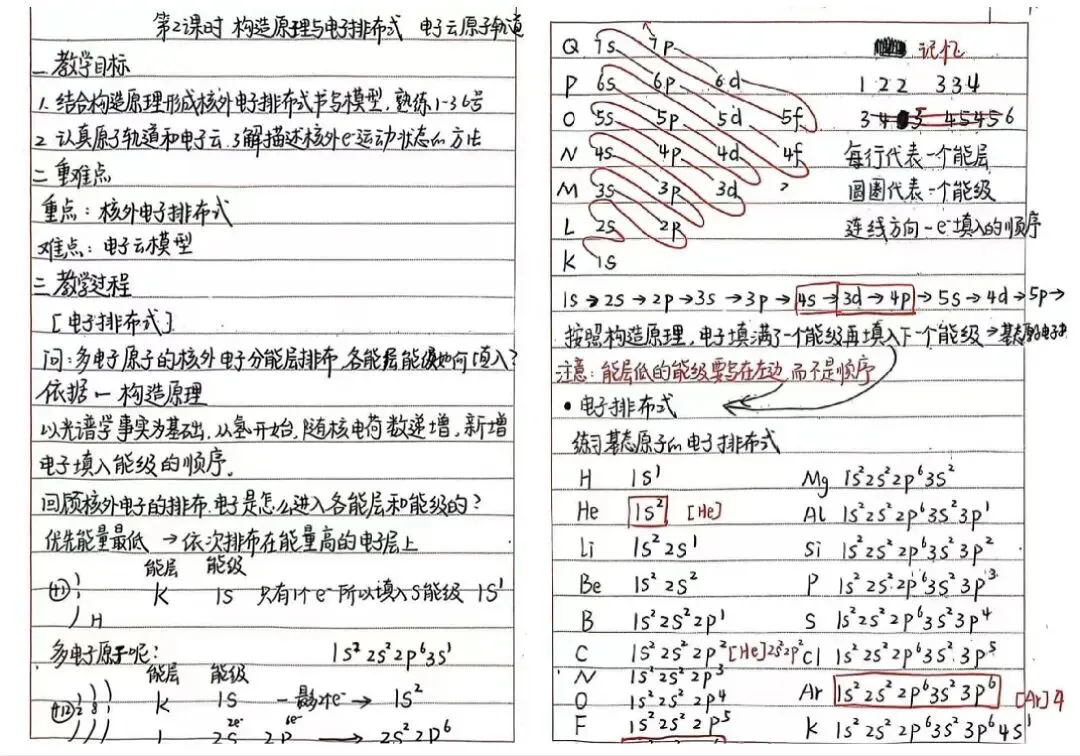 第2课时 构造原理与电子排布式 电子云原子轨道
一 教学目标
1. 结合构造原理形成核外电子排布式书写模型,熟练1-36号
2 认真原子轨道和电子云.了解描述核外e-运动状态的方法
二 重难点
重点:核外电子排布式
难点:电子云模型
三 教学过程
[电子排布式]
问:多电子原子的核外电子分能层排布,各能层能级如何填入?
依据一构造原理
以光谱学事实为基础,从氢开始,随核电荷数递增,新增
电子填入能级的顺序.
回顾核外电子的排布,电子是怎么进入各能层和能级的?
优先能量最低 →依次排布在能量高的电子层上
能层 能级
+1 1 K 1s 只有1个e-所以填入S能级 1S¹
H
多电子原子呢: 1s² 2s² 2p⁶ 3s¹
能层 能级
+12 2 8 K 1s 一最多2个e- → 1s²
2e- 6e-
L 2s 2p → 2s² 2p⁶
Q 7s 7p 记忆
P 6s 6p 6d 1 2 2 3 3 4
O 5s 5p 5d 5f 3 4 5 4 5 4 5 6
N 4s 4p 4d 4f 每行代表一个能层
M 3s 3p 3d 圆圈代表一个能级
L 2s 2p 连线方向-e-填入的顺序
K 1s
1s→2s→2p→3s→3p→4s→3d→4p→5s→4d→5p→
按照构造原理,电子填满了一个能级再填入下一个能级→基态原子电子
注意:能层低的能级要写在左边,而不是顺序
•电子排布式
练习基态原子的电子排布式
H 1s¹
He 1s² [He]
Li 1s² 2s¹
Be 1s² 2s²
B 1s² 2s² 2p¹
C 1s² 2s² 2p² [He]2s²2p²
N 1s² 2s² 2p³
O 1s² 2s² 2p⁴
F 1s² 2s² 2p⁵
Mg 1s² 2s² 2p⁶ 3s²
Al 1s² 2s² 2p⁶ 3s² 3p¹
Si 1s² 2s² 2p⁶ 3s² 3p²
P 1s² 2s² 2p⁶ 3s² 3p³
S 1s² 2s² 2p⁶ 3s² 3p⁴
Cl 1s² 2s² 2p⁶ 3s² 3p⁵
Ar 1s² 2s² 2p⁶ 3s² 3p⁶ [Ar]4
K 1s² 2s² 2p⁶ 3s² 3p⁶ 4s¹